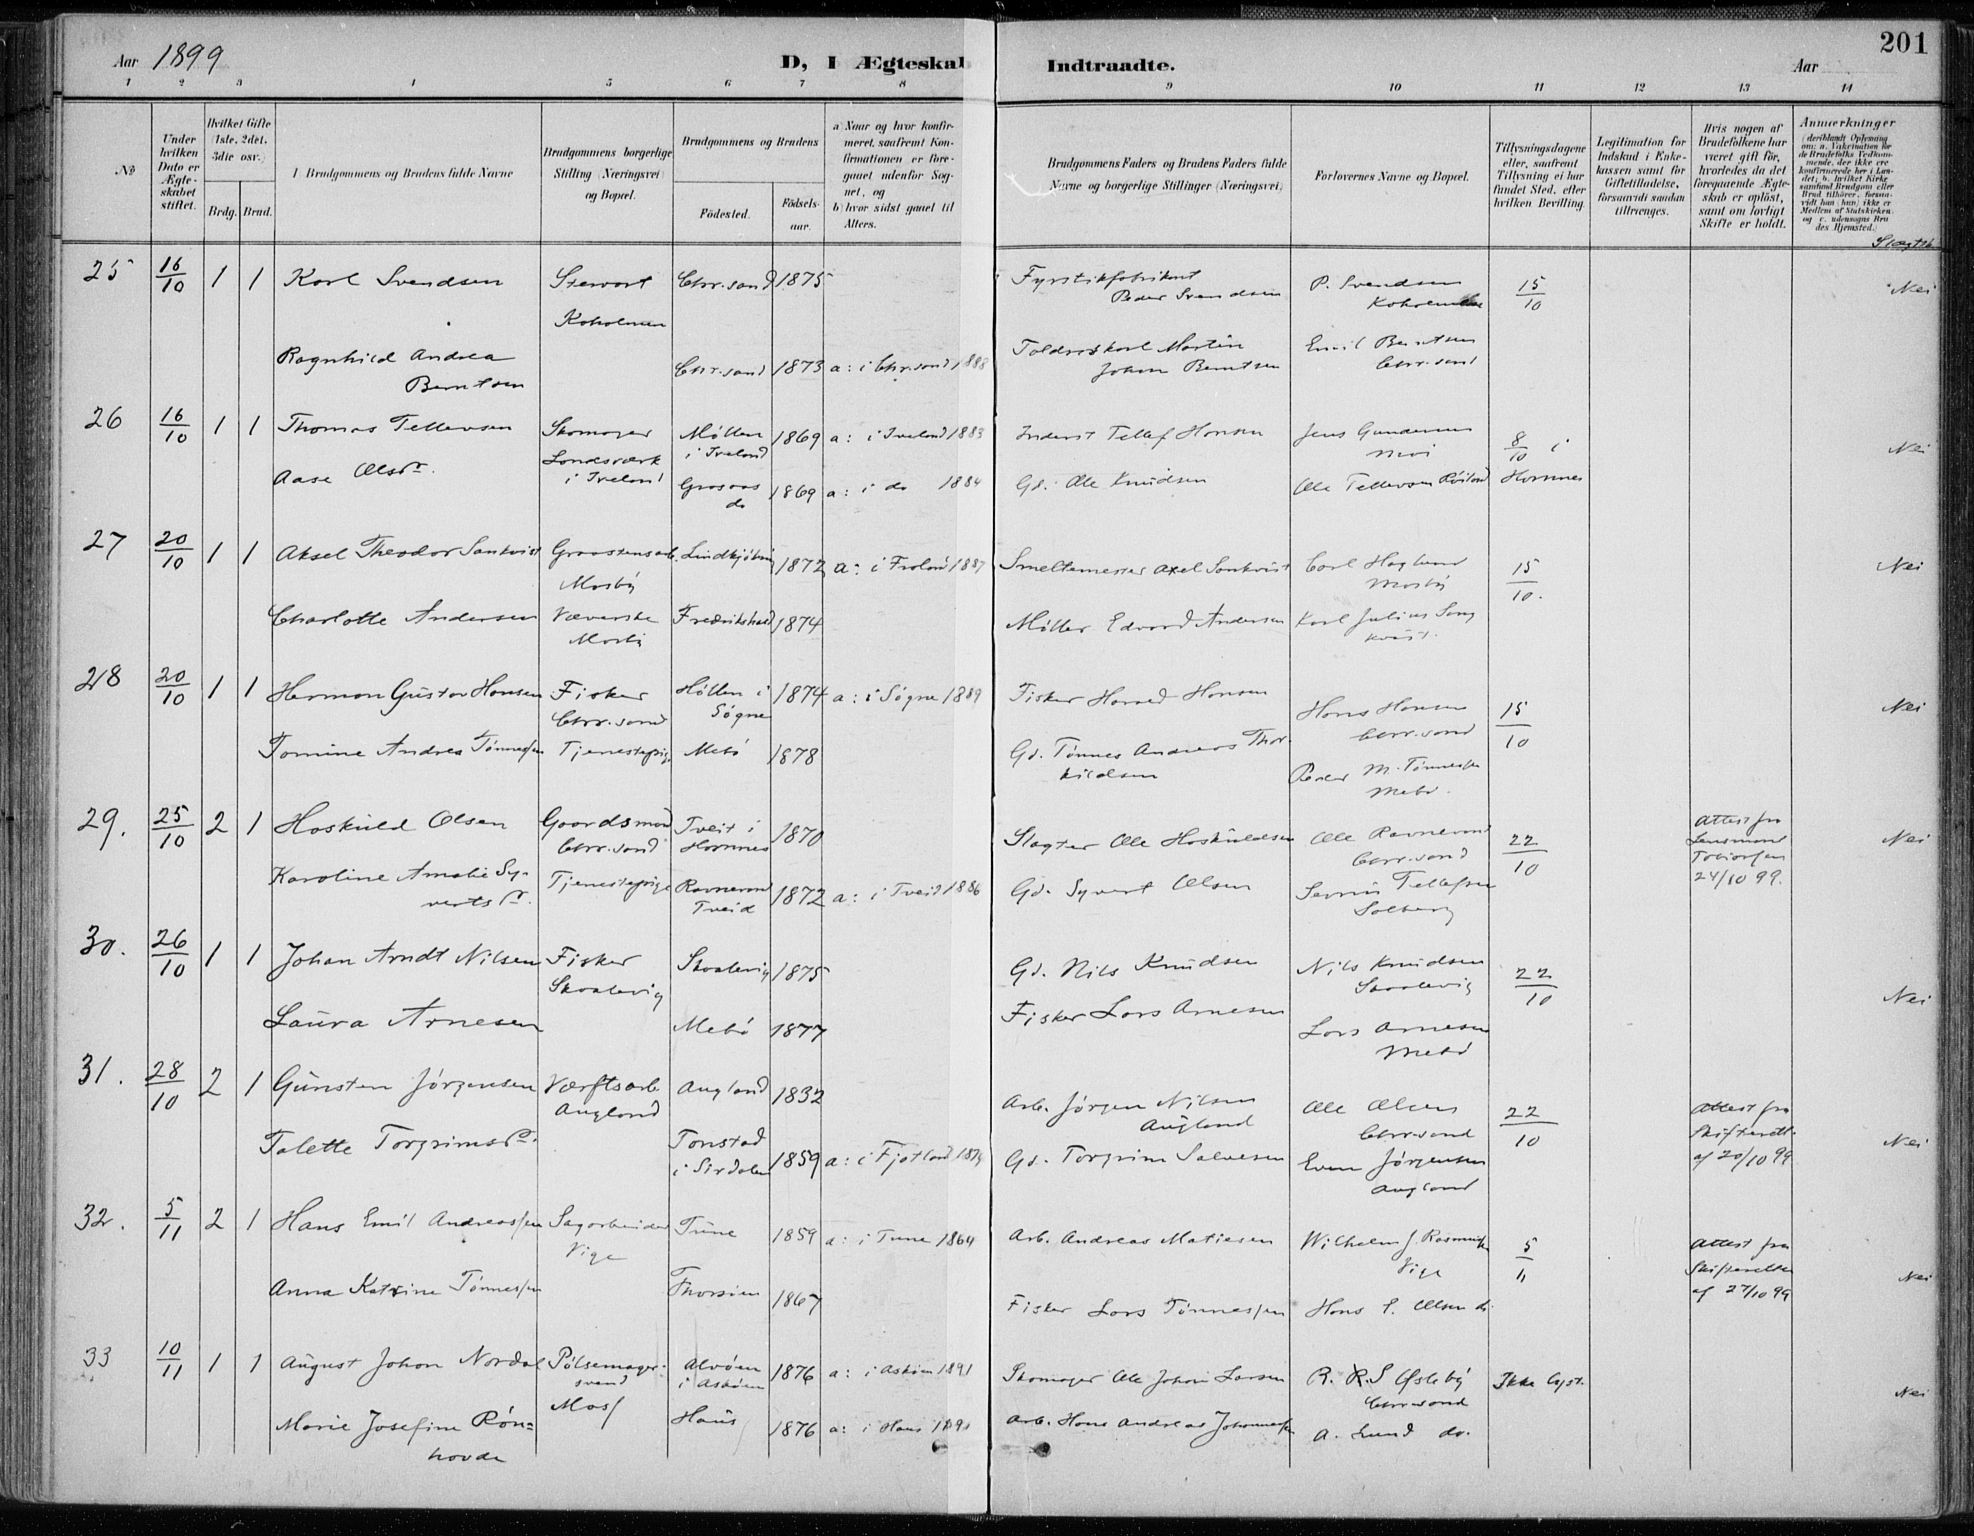 201
Aar 1899
D, I Ægteskab Indtraadte.
Aar
1 2 3 4 5 6 7 8 9 10 11 12 13 14
№
Under hvilken Dato er Ægteskabet stiftet.
Hvilket Gifte (1ste, 2det, 3die osv.)
Brdg. Brud.
Brudgommens og Brudens fulde Navne
Brudgommens borgerlige Stilling (Næringsvei) og Bopæl.
Brudgommens og Brudens
Födested.
Födselsaar.
a) Naar og hvor konfirmeret, saafremt Konfirmationen er foregaaet udenfor Sognet, og
b) hvor sidst gaaet til Alters.
Brudgommens Faders og Brudens Faders fulde Navne og borgerlige Stillinger (Næringsvei)
Forlovernes Navne og Bopæl.
Tillysningsdagene eller, saafremt Tillysning ei har fundet Sted, efter hvilken Bevilling.
Legitimation for Indskud i Enkekassen samt for Giftetilladelse, forsaavidt saadan tiltrænges.
Hvis nogen af Brudefolkene har været gift för, hvorledes da det foregaaende Ægteskab er oplöst, samt om lovligt Skifte er holdt.
Anmærkninger
25 16/10 1 1 Karl Svendsen Stewart Chr.sand 1875 Fyrstikfabrikant Peder Svendsen P. Svendsen Koholmen 15/10 Nei
Koholmen
Ragnhild Andrea Berntsen Chr.sand 1873 a: i Chr.sand 1888 Martin Johan Berntsen Emil Berntsen Chr.sand
26 16/10 1 1 Thomas Tellevsen Skomager Landsværk i Iveland Møllen i Iveland 1869 a: i Iveland 1883 Inderst Tellef Hansen Jens Gundersen 8/10 i Hornnes Nei
Aase Olsdr. Grosaas do 1869 a: i do 1884 Gd. Ole Knudsen Ole Tellevsen
27 20/10 1 1 Aksel Theodor Sankvist Graastensarb. Mosby Lindkjöbing 1872 a: i Froland 1887 Smeltemester Axel Sankvist Carl Haglund Mosby 15/10. Nei
Charlotte Andersen Væverske Mosby Fredrikshald 1874 Møller Edvard Andersen Karl Julius Sangkvist.
28 20/10 1 1 Herman Gustav Hansen Fisker Chr.sand Høllen i Søgne 1874 a: i Søgne 1889 Fisker Harald Hansen Hans Hansen Chr.sand 15/10 Nei
Tomine Andrea Tønnessen Tjenestepige Mebø 1878 Gd. Tønnes Andreas Thorkildsen Peder M. Tønnessen Mebø.
29. 25/10 2 1 Hoskuld Olsen Gaardsmand Chr.sand Tveit i Hornnes 1870 Slagter Ole Hoskuldsen Ole Ravnevand Chr.sand 22/10 Attest fra Lensmand Tobiassen 24/10 99. Nei
Karoline Amalie Syvertsdr. Tjenestepige Ravnevand Tveid 1872 a: i Tveid 1886 Gd. Syvert Olsen Tellefsen Solberg
30. 26/10 1 1 Johan Arndt Nilsen Fisker Skaalevig Skaalevig 1875 Gd. Nils Knudsen Nils Knudsen Skaalevig 22/10 Nei
Laura Arnesen Mebø 1877 Fisker Lars Arnesen Lars Arnesen Mebø
31. 28/10 2 1 Gunsten Jørgensen Værftsarb. Augland Augland 1832 Arb. Jørgen Nilsen Augland Ole Olsen Chr.sand 22/10 Attest fra Skifteret af 20/10 99 Nei
Talette Torgrimsdr. Tonstad i Sirdalen 1859 a: i Fjotland Gd. Torgrim Salvesen Even Jørgensen Augland
32. 5/11 2 1 Hans Emil Andreassen Sagarbeider Vige Tune 1859 a: i Tune 1864 Arb. Andreas Matiesen Wilhelm J. Rasmussen Vige 5/11 Attest fra Skifteretten af 27/10 99 Nei
Anna Katrine Tønnessen 1867 Fisker Lars Tønnessen Hans Olsen do.
33 10/11 1 1 August Johan Nordal Pølsemagersvend Moss Alvøen i Askøen 1876 a: i Askøen 1891 Skomager Ole Johan Larsen R. S Øsleby Chr.sand Ikke lyst. Nei
Marie Josefine Rønhovde Haus 1876 a: i Haus Arb. Hans Andreas Johannessen A. Lund do.